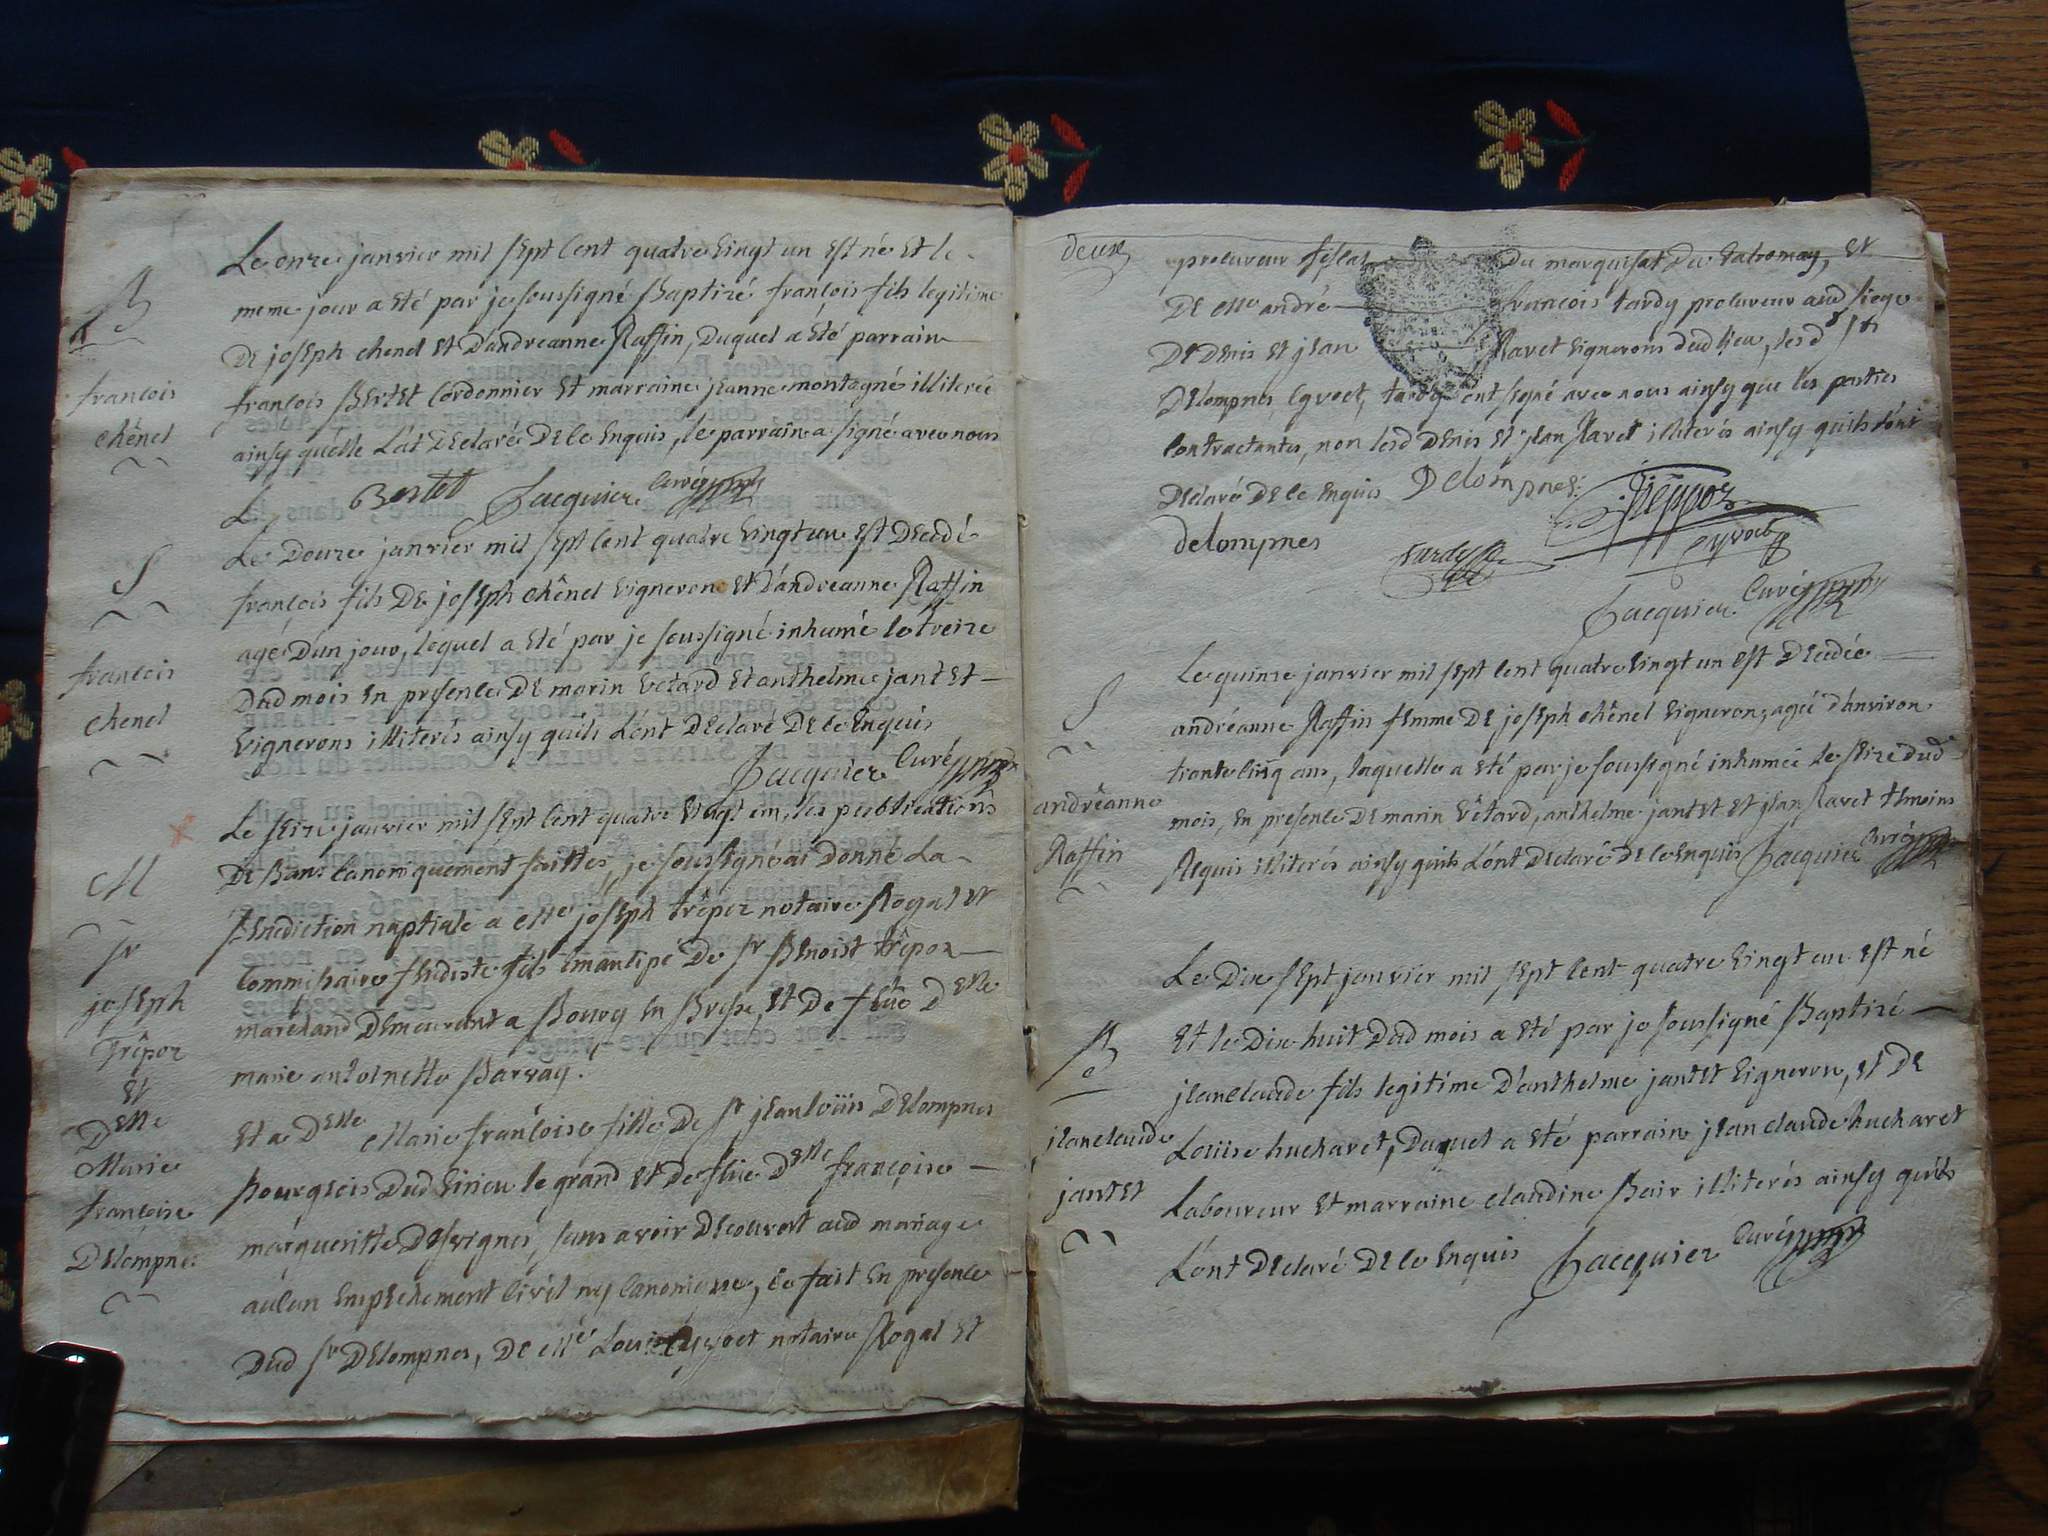 B
françois
chênel
Le onze janvier mil sept cent quatre vingt un est né et le
meme jour a eté par je soussigné Baptizé françois fils legitime
De joseph chenel et D'andreanne Raffin, Duquel a eté parrain
françois Bertet Cordonnier et marraine jeanne montagné illiterée
ainsy quelle L'at Declaré De ce Enquis, le parrain a signé avec nous
Bertet Jacquier Curé
S
françois
chenel
Le Douze janvier mil sept cent quatre vingt un est Decedé
françois fils De joseph chênel vigneron et D'andreanne Raffin
agé D'un jour, lequel a eté par je soussigné inhumé le treize
Dud mois en presence De marin vetard et anthelme jantet
vignerons illiterés ainsy quils L'ont Declaré De ce Enquis
Jacquier Curé
M
sr
joseph
Trêpoz
et
Delle
Marie
françoise
Delompnes
Le seize janvier mil sept cent quatre vingt un, les publications
De Bans Canoniquement faittes, je soussigné ai donné La
Benediction nuptiale a Me joseph trêpoz notaire Royal et
Commissaire feudiste fils Emancipé De sr Benoist trêpoz
marchand Demeurant a Bourg en Bresse, et De feue Delle
marie antoinette Barvay.
et a Delle Marie françoise fille De sr jean loüis Delompnes
Bourgeois Dud virieu le grand et De feüe Delle françoise
margueritte Desvignes, sans avoir Decouvert aud mariage
aucun Empechement Civil ny Canonique, ce fait en presence
Dud sr Delompnes, De Me Louis Cyvoct notaire Royal et
deux
procureur fiscal Du marquisat Du valromay, et
De Me andré françois tardy procureur aud siege
De Denis et jean Ravet vignerons dud lieu, lesd srs
Delompnes Cyvoct, tardy ont signé avec nous ainsy que les parties
Contractantes, non lesd Denis et jean Ravet illiterés ainsy quils L'ont
Declaré De ce Enquis Delompnes Trêppoz
delompnes Tardy Cyvoct
Jacquier Curé
S
andréanne
Raffin
Le quinze janvier mil sept cent quatre vingt un est Decedée
andréanne Raffin femme De joseph chênel vigneron, agée d'anviron
trente cinq ans, laquelle a eté par je soussigné inhumée Le seize dud
mois, en presence De marin vêtard, anthelme jantet et jean Ravet temoins
Requis illiterés ainsy quils L'ont Declaré De ce Enquis Jacquier Curé
B
jean claude
jantet
Le Dix sept janvier mil sept cent quatre vingt un est né
et le Dix huit Dud mois a eté par je soussigné Baptizé
jean claude fils legitime D'anthelme jantet vigneron, et De
Loüise hucharet, Duquel a eté parrain jean claude hucharet
Laboureur et marraine claudine Bair illiterés ainsy quils
L'ont Declaré De ce Enquis Jacquier Curé